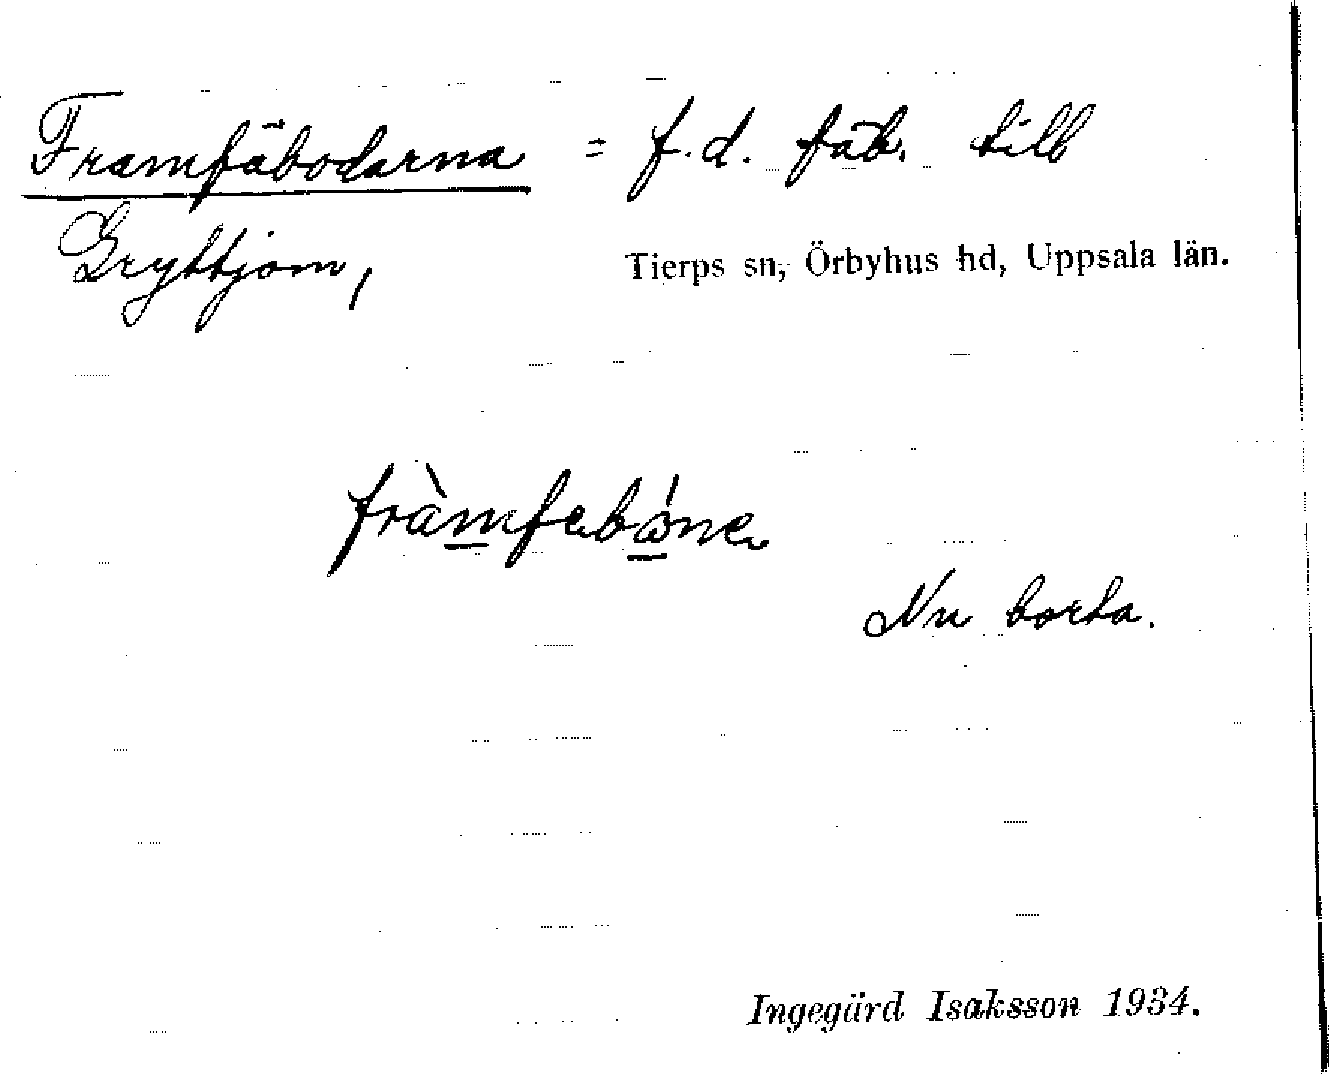 Framfäbodarna = f.d. fäb. till
Gryttjom, Tierps sn, Örbyhus hd, Uppsala län.
fràmfebóne
Nu borta.
Ingegärd Isaksson 1934.